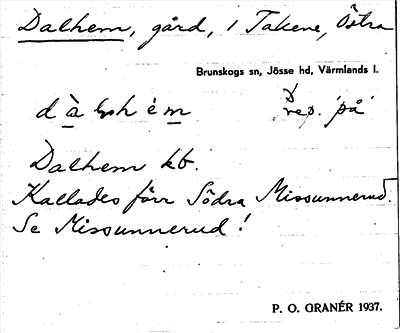 Dalhem, gård, i Takene, Östra
Brunskogs sn, Jösse hd, Värmlands l.
dàlhèm prep. 'på'
Dalhem kb.
Kallades förr Södra Missunnerud.
Se Missunnerud!
P. O. GRANÉR 1937.